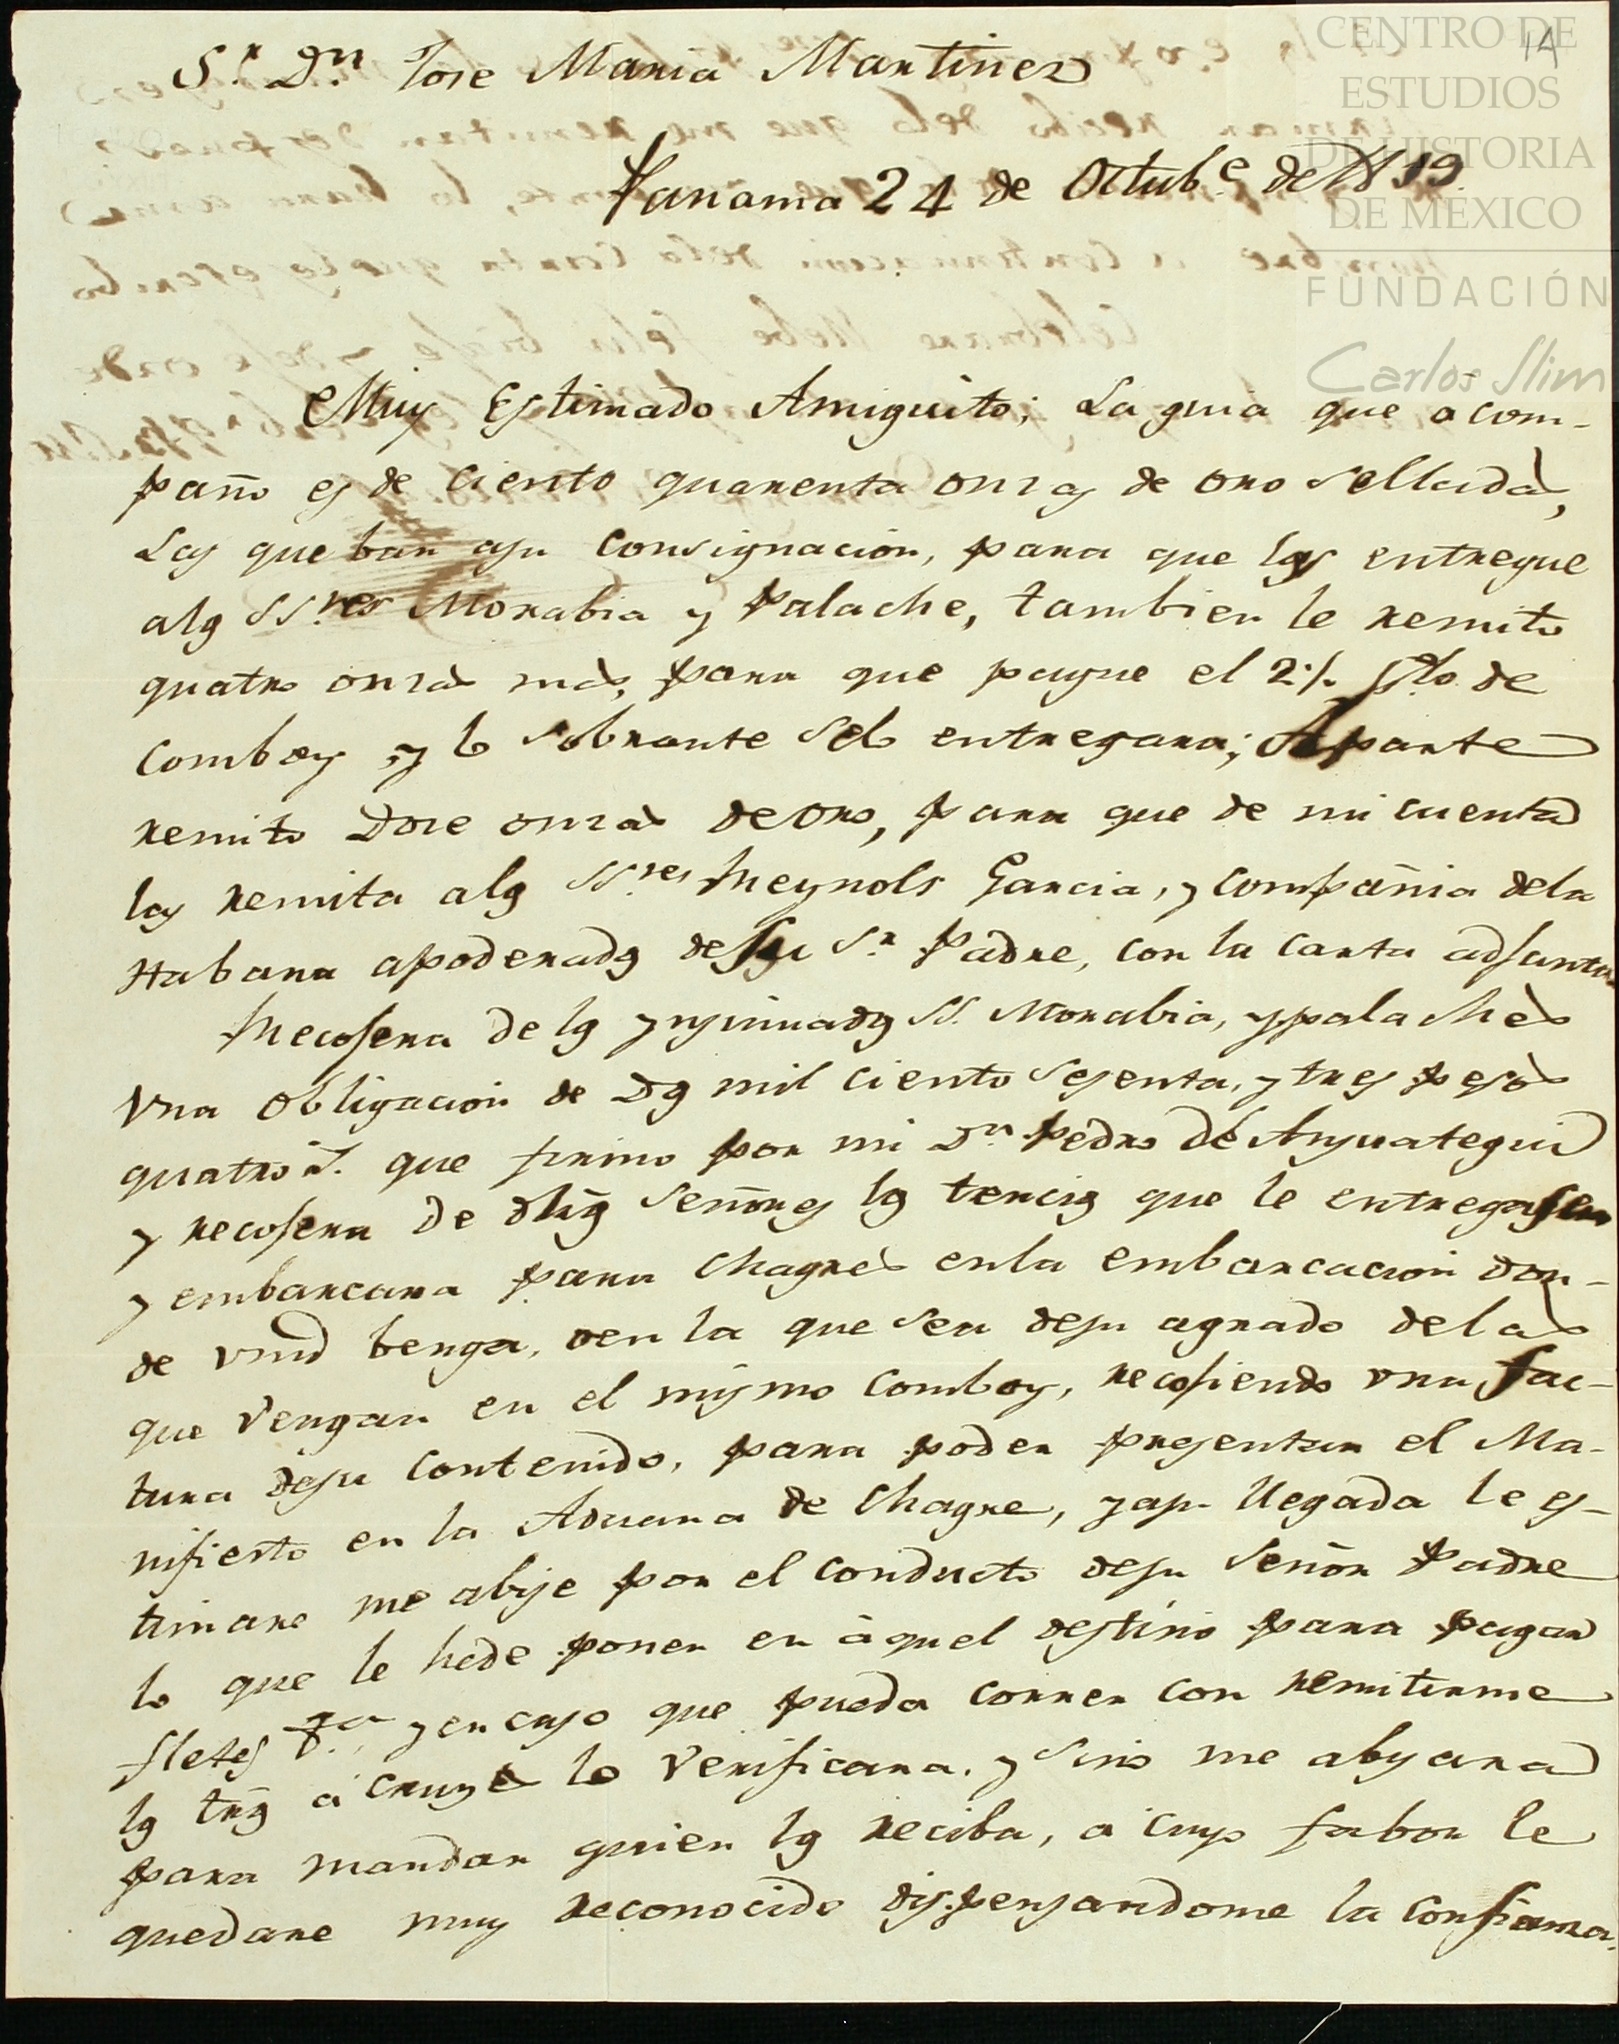 14
CENTRO DE
ESTUDIOS
DE HISTORIA
DE MÉXICO
FUNDACIÓN
Carlos Slim
S.r D.n Jose Maria Martinez
Panama 24 de Octub.e de 1819.
Muy Estimado Amiguito; La guia que acom-
paño es de ciento quarenta onzas de oro selladas,
Las que ban asu consignacion, para que las entregue
alos SS.res Morabia y Palache, tambien le remito
quatro onzas mas, para que pague el 2 % de
Comboy, y lo sobrante selo entregara; Aparte
remito Doze onzas de oro, para que de mi cuenta
las remita alos SS.res Reynols Garcia, y Compañia dela
Habana apoderados de su S.r Padre, con la carta adjunta
Recojera de los ynsinuados SS. Morabia, y palaches
vna obligacion de Dos mil ciento sesenta, y tres pesos
quatro r.s que firmo por mi D.n Pedro de Ansuategui
y recojera de dhos señores los tercios que le entregasen
y embarcara para Chagres enla embarcacion don-
de vmd benga, o en la que sea desu agrado delas
que vengan en el mismo Comboy, recojiendo vna fac-
tura desu contenido, para poder presentar el Ma-
nifiesto en la Aduana de Chagre, y asu llegada le es-
timare me abise por el conducto desu señor Padre
lo que le hede poner en aquel destino para pagar
fletes y en caso que pueda correr con remitirme
los trs a Cruzes lo verificara, y sino me abisara
para mandar quien los reciba, a cuyo fabor le
quedare muy reconocido dispensandome la confianza,